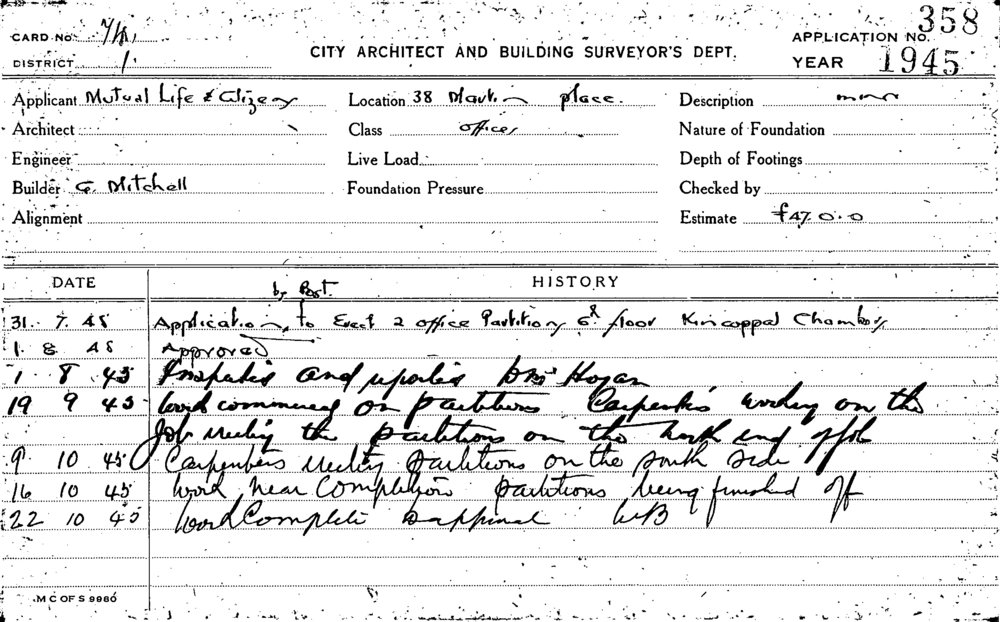 CARD NO.
358
APPLICATION NO.
DISTRICT 1.
CITY ARCHITECT AND BUILDING SURVEYOR'S DEPT.
YEAR 1945
Applicant Mutual Life & Citizens Location 38 Martin place. Description minor
Architect Class offices Nature of Foundation
Engineer Live Load Depth of Footings
Builder G. Mitchell Foundation Pressure Checked by
Alignment Estimate £47.0.0
DATE HISTORY
by Post.
31. 7. 45 Application, to Erect 2 office Partitions 6th floor Kincoppal Chambers
1. 8 45 Approved
1 8 45 and Hogan
19 9 45 Work commenced on partitions Carpenters working on the
job the partitions on the north end of job
9 10 45 Carpenters partitions on the south side
16 10 45 Work near completion partitions being finished off
22 10 45 Work Complete WB
M C OF S 9960